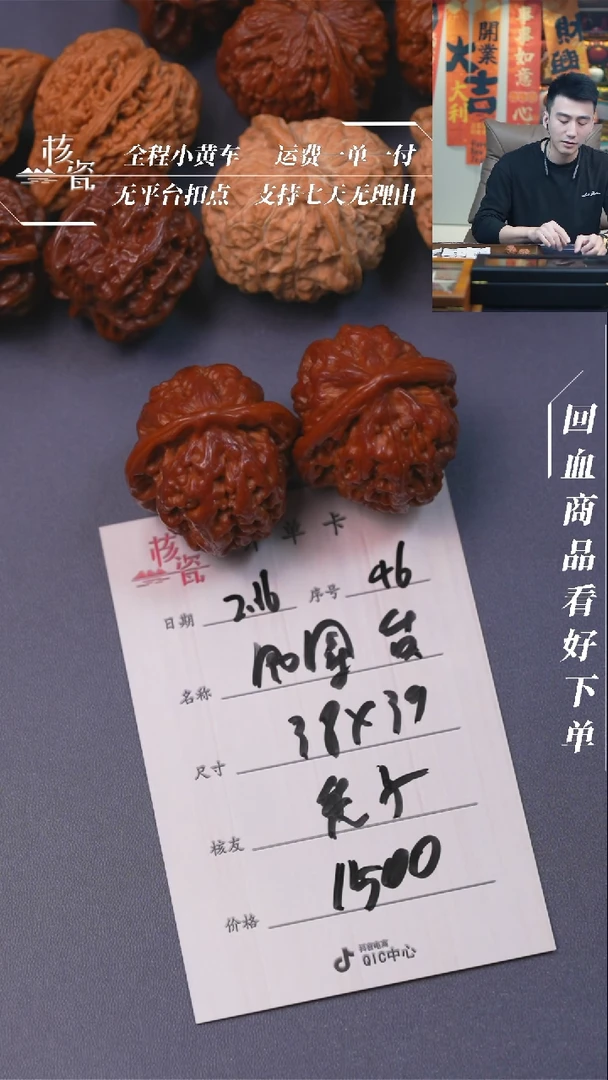 開業
大吉
大利
事事如意
心
財興
核瓷
全程小黄车 运费一单一付
无平台扣点 支持七天无理由
回血商品看好下单
核瓷
单卡
日期 2.16 序号 46
名称
尺寸 38X39
核友
价格 1500
抖音电商
QIC中心